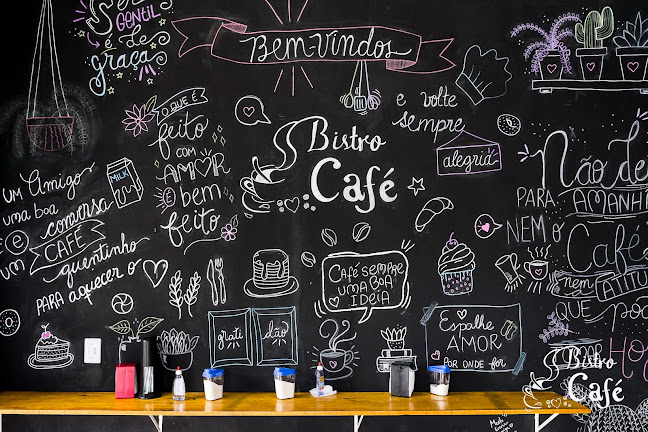 Ser
gentil
é de
graça
Bem-vindos
e volte
sempre
alegria
O QUE É
feito
COM AMOR
É bem
feito
Bistro
Café
MILK
um Amigo
uma boa
conversa
e
um
CAFÉ
quentinho
PARA aquecer o
Não de
PARA
AMANHÃ
NEM o
Café
nem
ATITU
que
que po
HO
CAFÉ SEMPRE
UMA BOA
IDEIA
grati
dão
Espalhe
AMOR
POR ONDE FOR
Bistro
Café